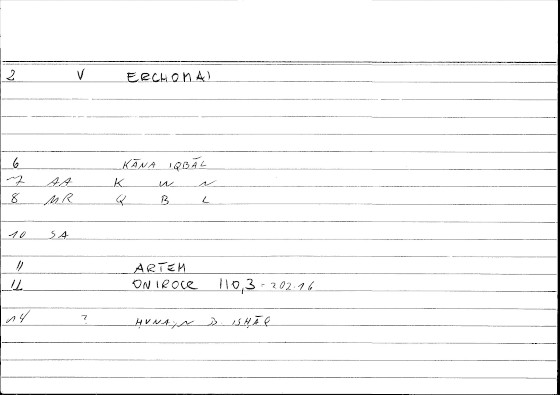 2 V ERCHOMAI
6 KĀNA IQBĀL
7 AA K W N
8 MR Q B L
10 SA
11 ARTEM
12 ONIROCR 110,3 - 202.16
14 ? HUNAYN B. ISHĀQ